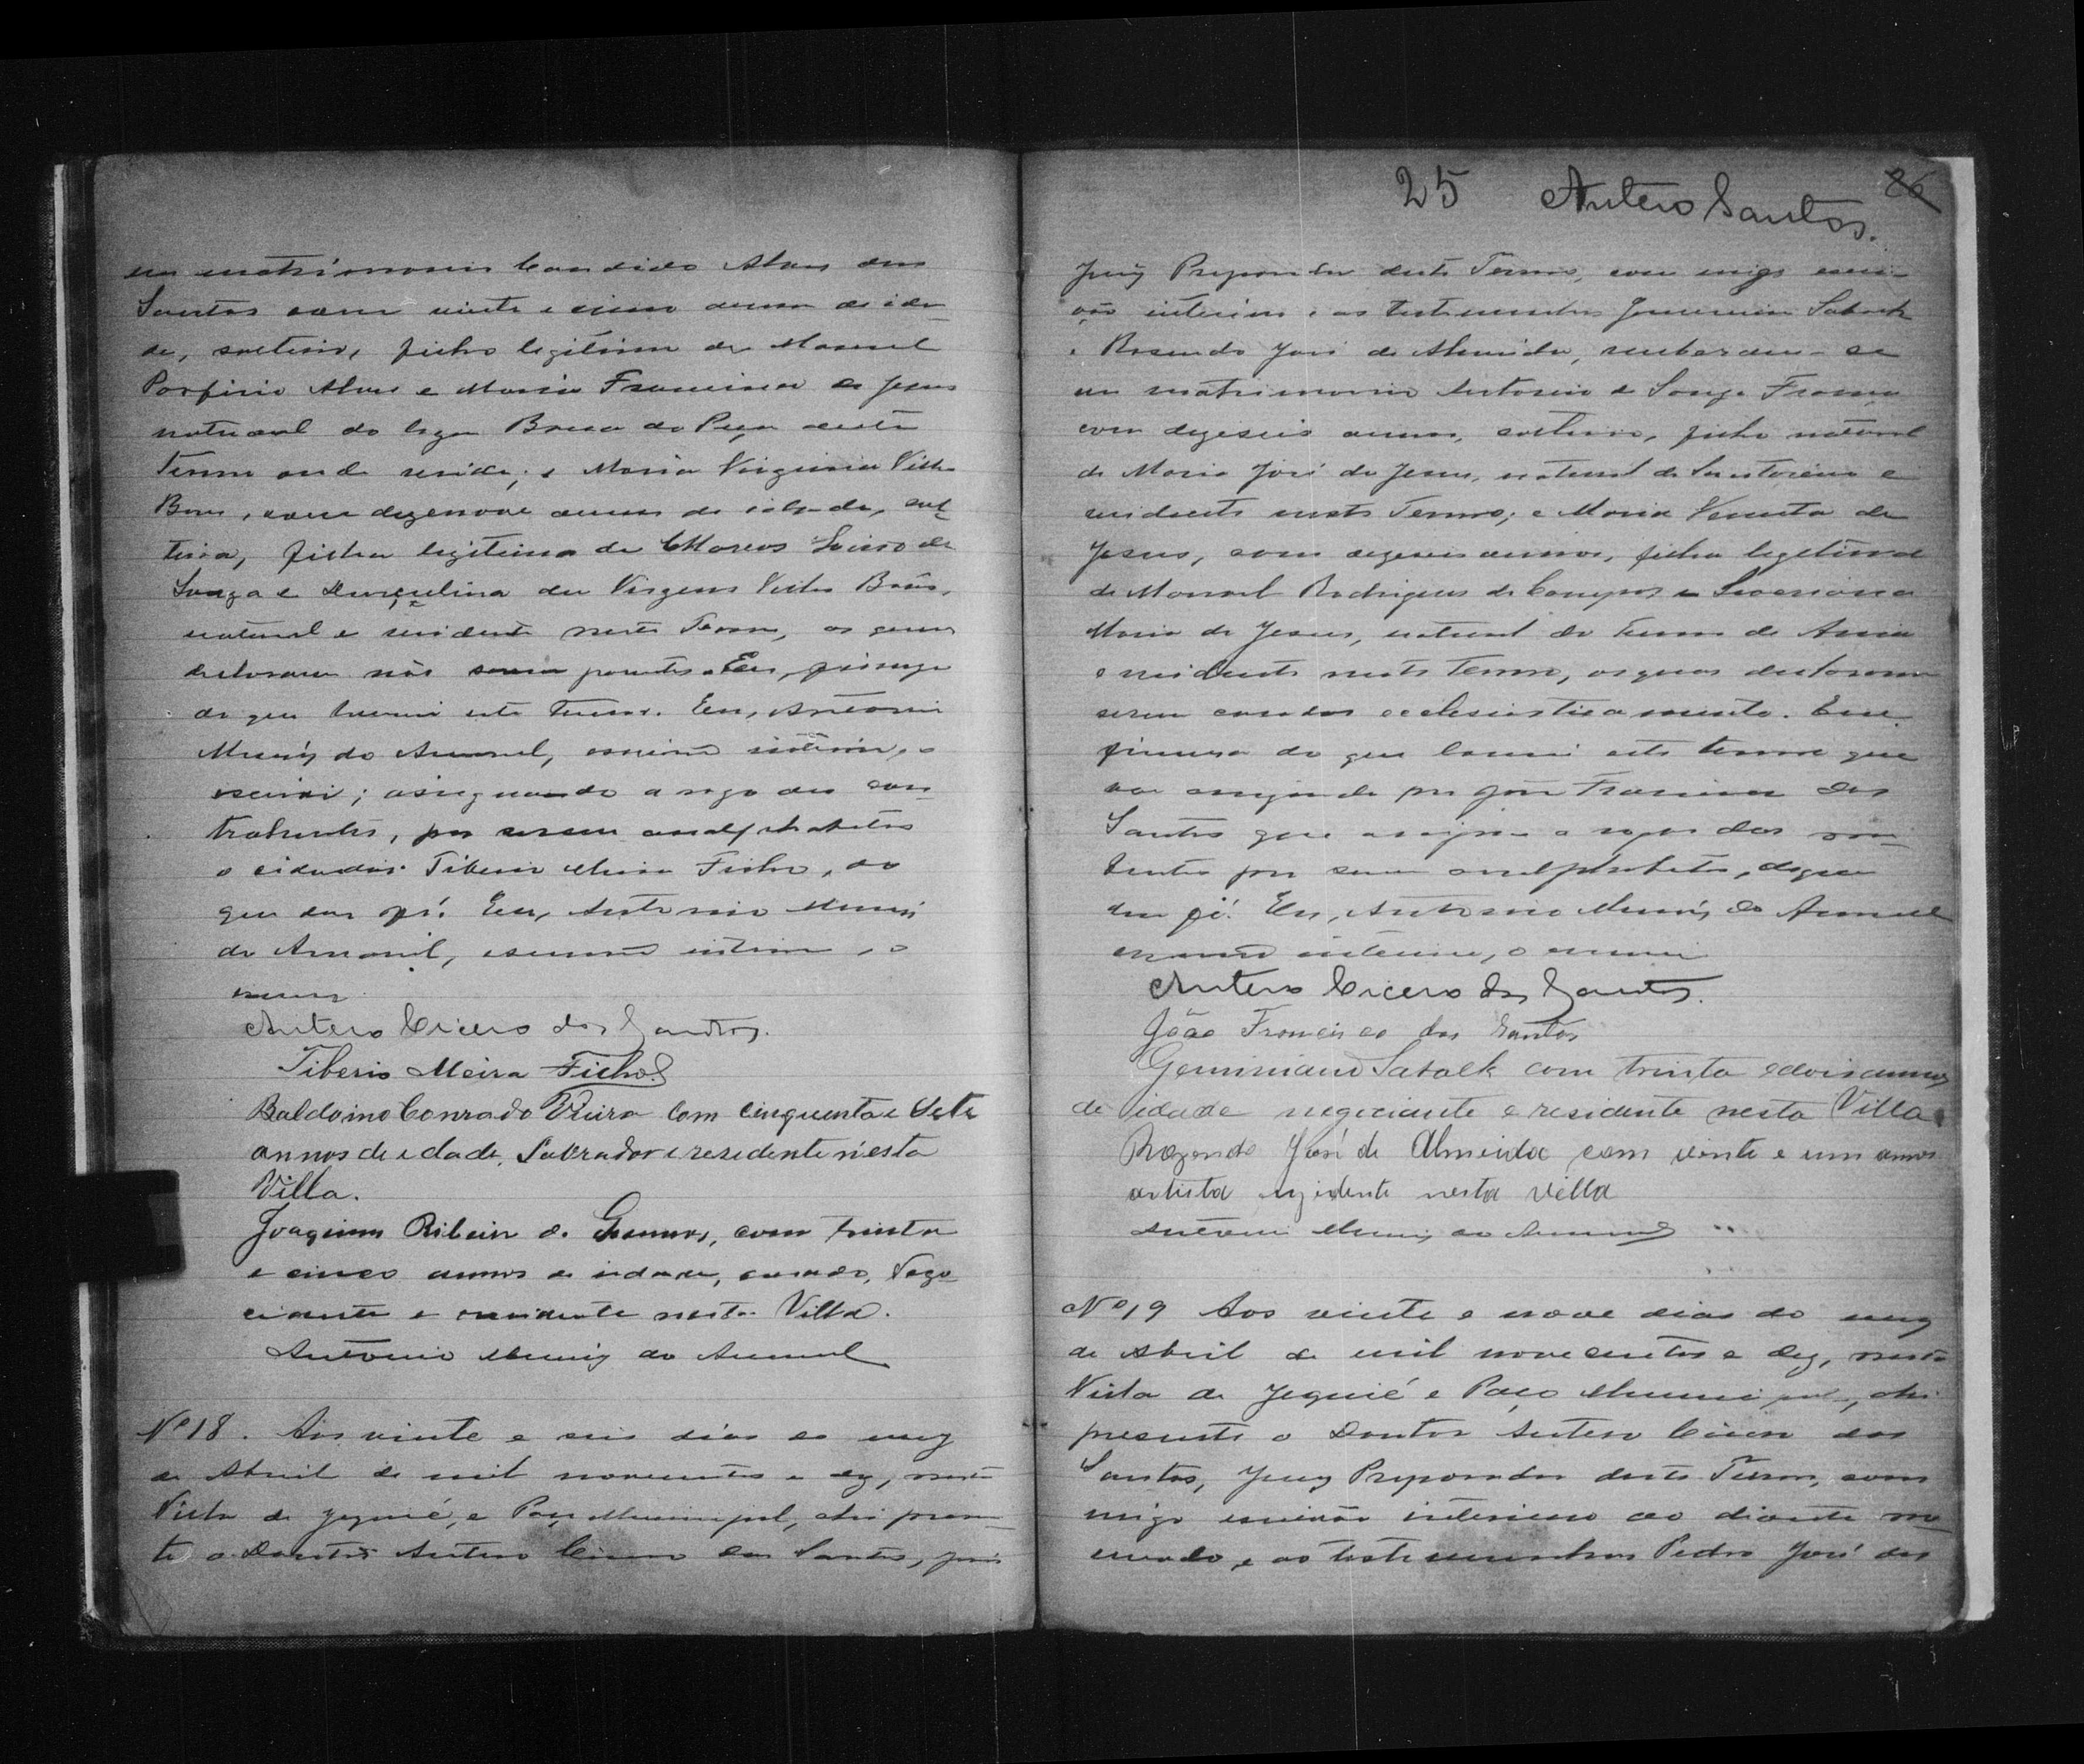 em matrimonio Candido Alves dos
Santos com vinte e cinco annos de ida-
de, solteiro, filho legitimo de Manoel
Porfirio Alves e Maria Francisca de Jesus
natural do lugar deste
Termo onde reside; e Maria Virginia Villas
Boas, com dezenove annos de idade, sol-
teira, filha legitima de Marcos de
Souza e das Virgens Villas Boas,
natural e residente neste Termo, os quaes
declararam não serem parentes. Em firmeza
do que lavrei este termo. Eu, Antonio
Muniz do Amaral, escrivão interino, o
escrevi; assignando a rogo dos con-
trahentes, por serem analphabetos
o cidadão Tiberio Meira Filho, do
que dou fé. Eu, Antonio Muniz
do Amaral, escrivão interino, o
escrevi
Antero Cicero dos Santos.
Tiberio Meira Filho
Baldoino Conrado Vieira com cinquenta e sete
annos de edade, Lavrador e residente n'esta
Villa.
Joaquim Ribeiro de com trinta
e cinco annos de idade, casado, Nego-
ciante e residente nesta Villa.
Antonio Muniz do Amaral
Nº 18. Aos vinte e seis dias do mez
de Abril de mil novecentos e dez, nesta
Villa de Jequié, e Paço Municipal, ahi presen-
te o Doutor Antero Cicero dos Santos, juiz
25 Antero Santos. 26
Juiz Preparador deste Termo, com migo escri-
vão interino e as testemunhas Geminiano Saback
e Rosendo José de Almeida, receberam-se
em matrimonio Antonio de Souza Franco
com dezeseis annos, solteiro, filho natural
de Maria José de Jesus, natural de e
residente neste Termo; e Maria de
Jesus, com dezeseis annos, filha legitima
de Manoel Rodrigues de Campos e
Maria de Jesus, natural do termo de Areia
e residente neste Termo, os quaes declararam
serem casados ecclesiasticamente. Em
firmeza do que lavrei este termo que
vae assignado por João Francisco dos
Santos que assigna a rogo dos con-
trahentes por serem analphabetos, do que
dou fé. Eu, Antonio Muniz do Amaral
escrivão interino, o escrevi
Antero Cicero dos Santos.
João Francisco dos Santos
Geminiano Saback com trinta e dois annos
de idade negociante e residente nesta Villa
Rozendo José de Almeida com vinte e um annos
artista rezidente nesta villa
Antonio Muniz do Amaral
Nº 19 Aos vinte e nove dias do mez
de Abril de mil novecentos e dez, nesta
Villa de Jequié e Paço Municipal, ahi
presente o Doutor Antero Cicero dos
Santos, Juiz Preparador deste Termo, com
migo escrivão interino ao diante no-
meado, e as testemunhas Pedro José dos